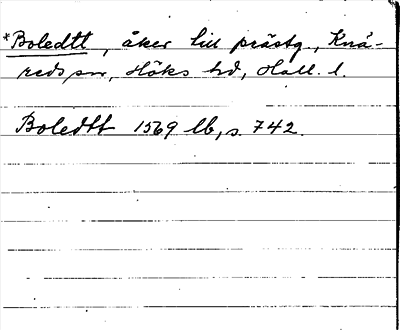 *Boledtt, åker till prästg., Knä-
reds sn, Höks hd, Hall. l.
Boledtt 1569 lb, s. 742.